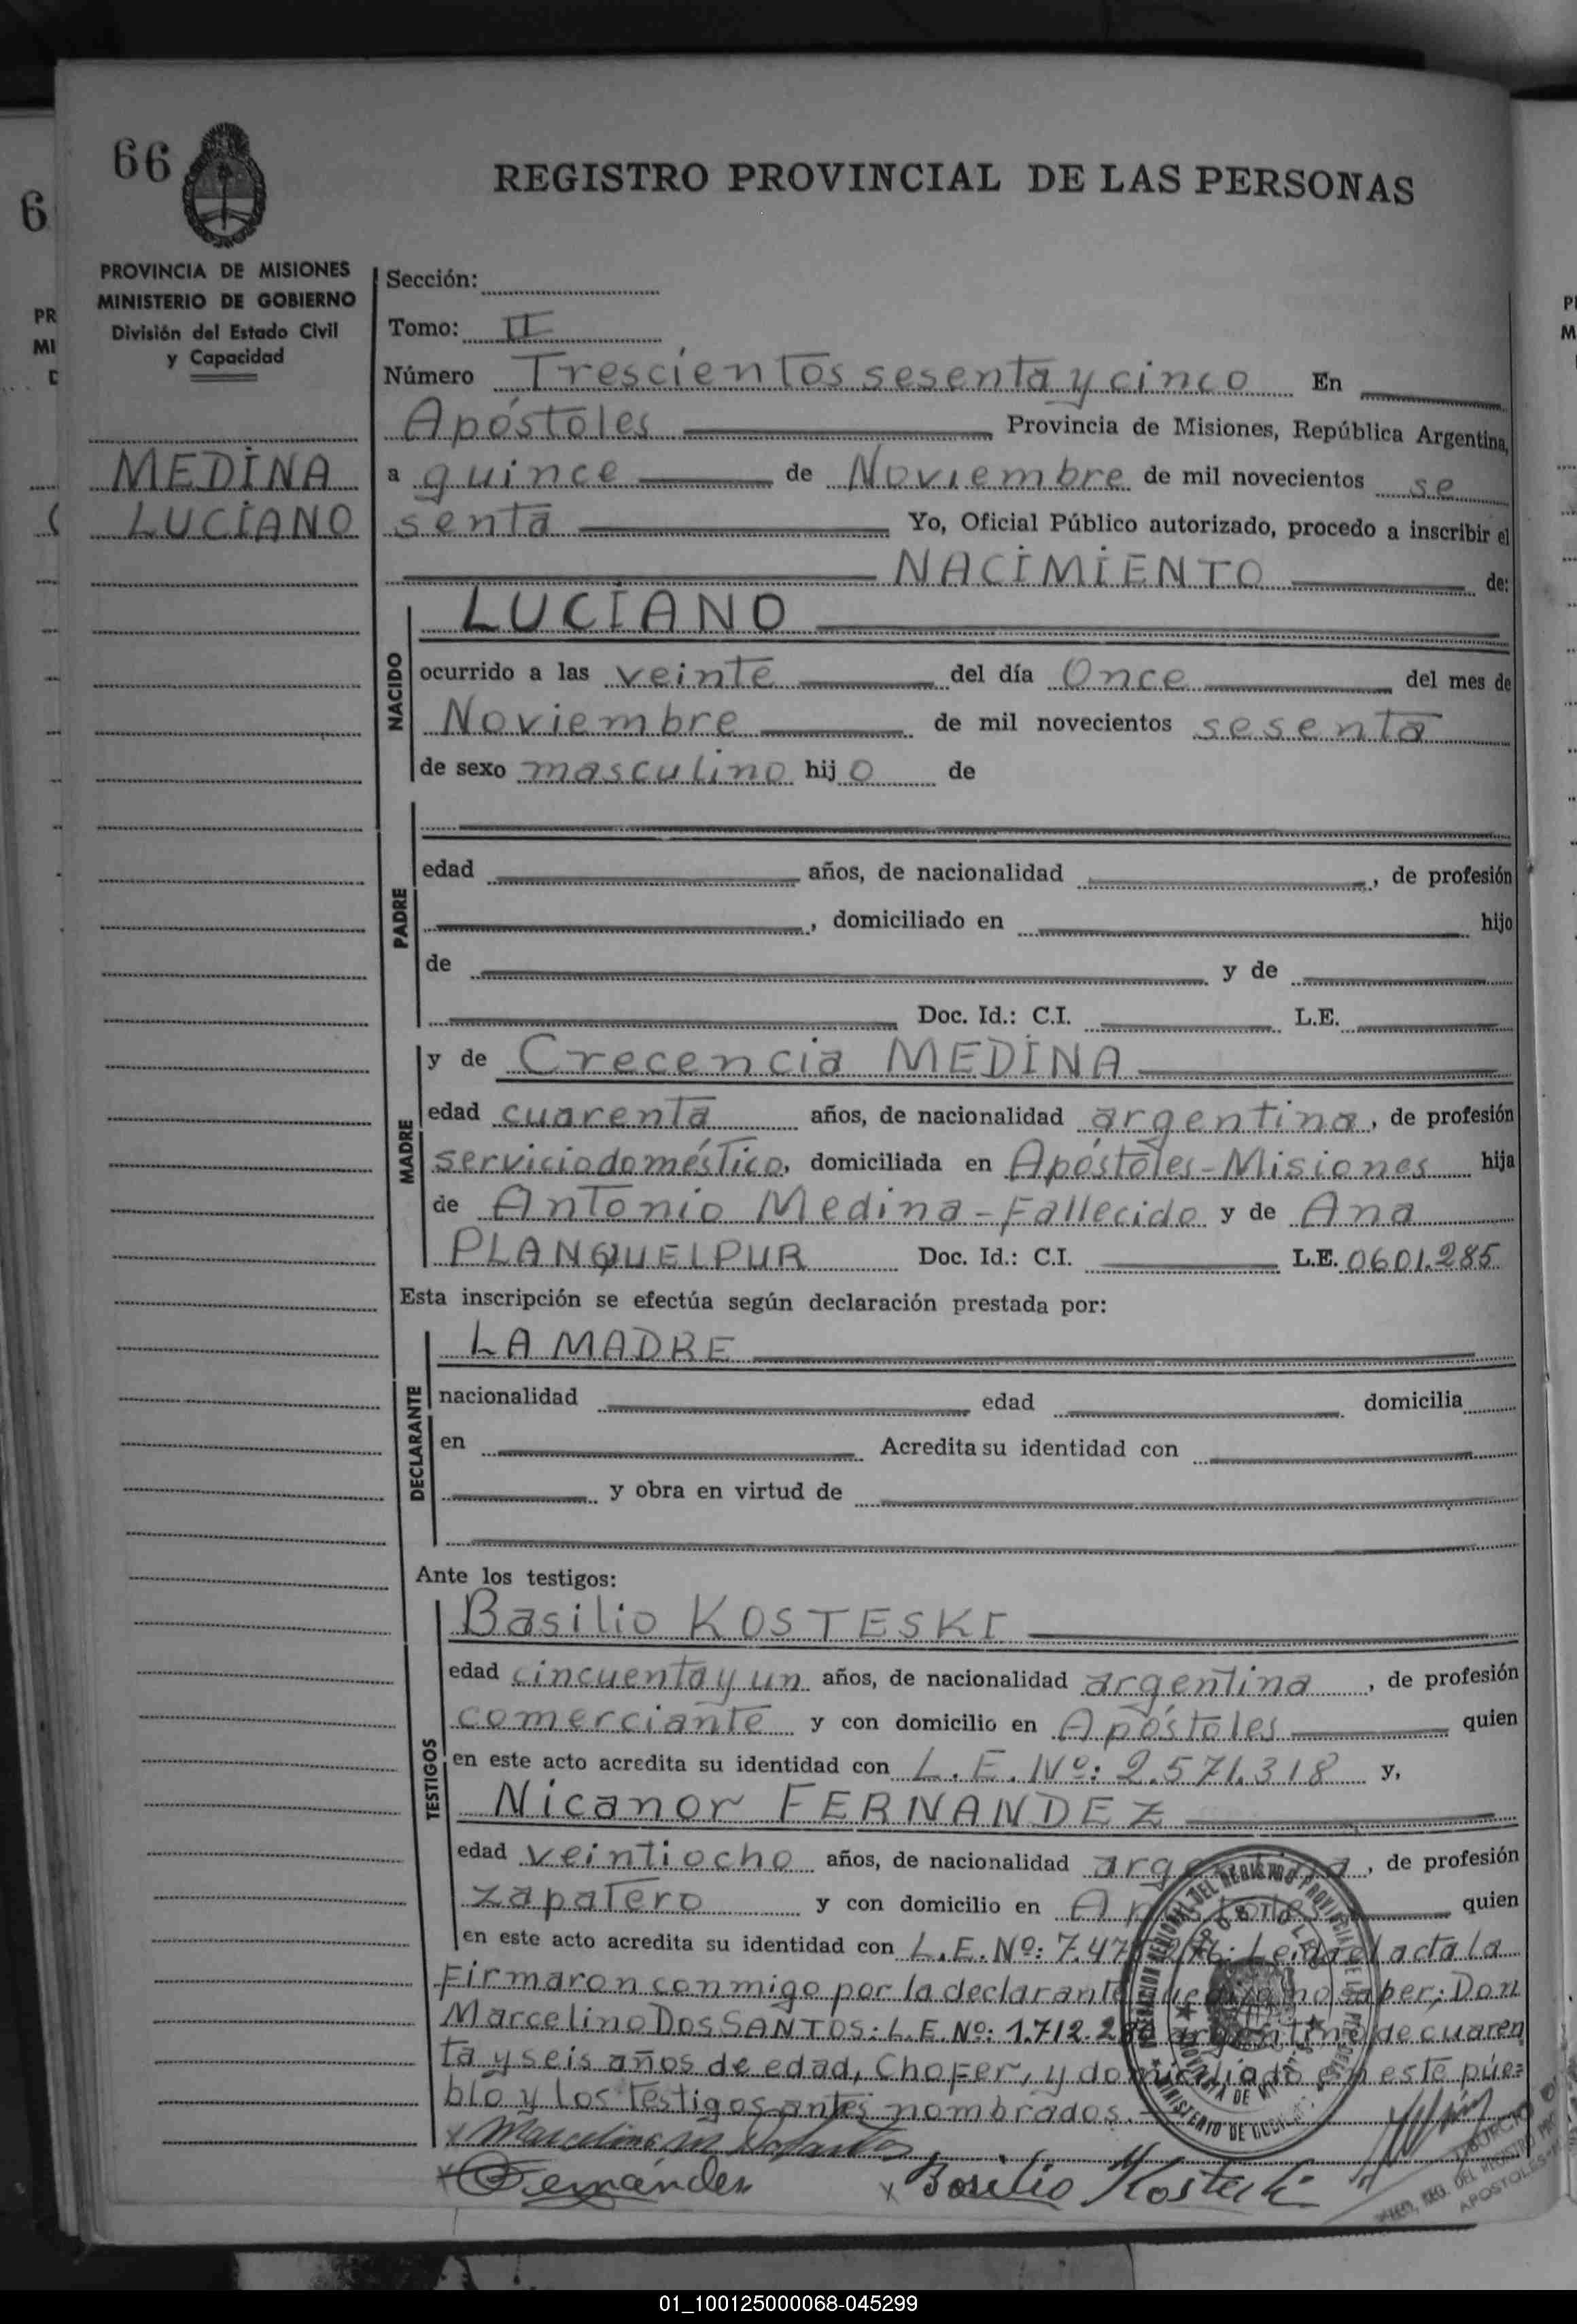 66
REGISTRO PROVINCIAL DE LAS PERSONAS
6
PROVINCIA DE MISIONES
MINISTERIO DE GOBIERNO
División del Estado Civil
y Capacidad
MEDINA
LUCIANO
Sección:
Tomo: II
Número Trescientos sesenta y cinco En
Apóstoles Provincia de Misiones, República Argentina,
a quince de Noviembre de mil novecientos se
senta Yo, Oficial Público autorizado, procedo a inscribir el
NACIMIENTO de:
NACIDO
LUCIANO
ocurrido a las veinte del día Once del mes de
Noviembre de mil novecientos sesenta
de sexo masculino hijo de
PADRE
edad años, de nacionalidad , de profesión
, domiciliado en hijo
de y de
Doc. Id.: C.I. L.E.
MADRE
y de Crecencia MEDINA
edad cuarenta años, de nacionalidad argentina, de profesión
servicio doméstico, domiciliada en Apóstoles-Misiones hija
de Antonio Medina-Fallecido y de Ana
PLANQUELPUR Doc. Id.: C.I. L.E. 0601.285
Esta inscripción se efectúa según declaración prestada por:
DECLARANTE
LA MADRE
nacionalidad edad domicilia
en Acredita su identidad con
y obra en virtud de
Ante los testigos:
TESTIGOS
Basilio KOSTESKI
edad cincuenta y un años, de nacionalidad argentina, de profesión
comerciante y con domicilio en Apóstoles quien
en este acto acredita su identidad con L.E.Nº: 2.571.318 y,
Nicanor FERNANDEZ
edad veintiocho años, de nacionalidad argentina, de profesión
zapatero y con domicilio en Apóstoles quien
en este acto acredita su identidad con L.E.Nº: Leida el acta la
Firmaron conmigo por la declarante no saber; Don
Marcelino DOS SANTOS: L.E.Nº: argentino de cuaren
ta y seis años de edad, Chofer, y domiciliado en este pue=
blo y los testigos antes nombrados.
Fernández
Basilio Kosteski
APOSTOLES
01_100125000068-045299